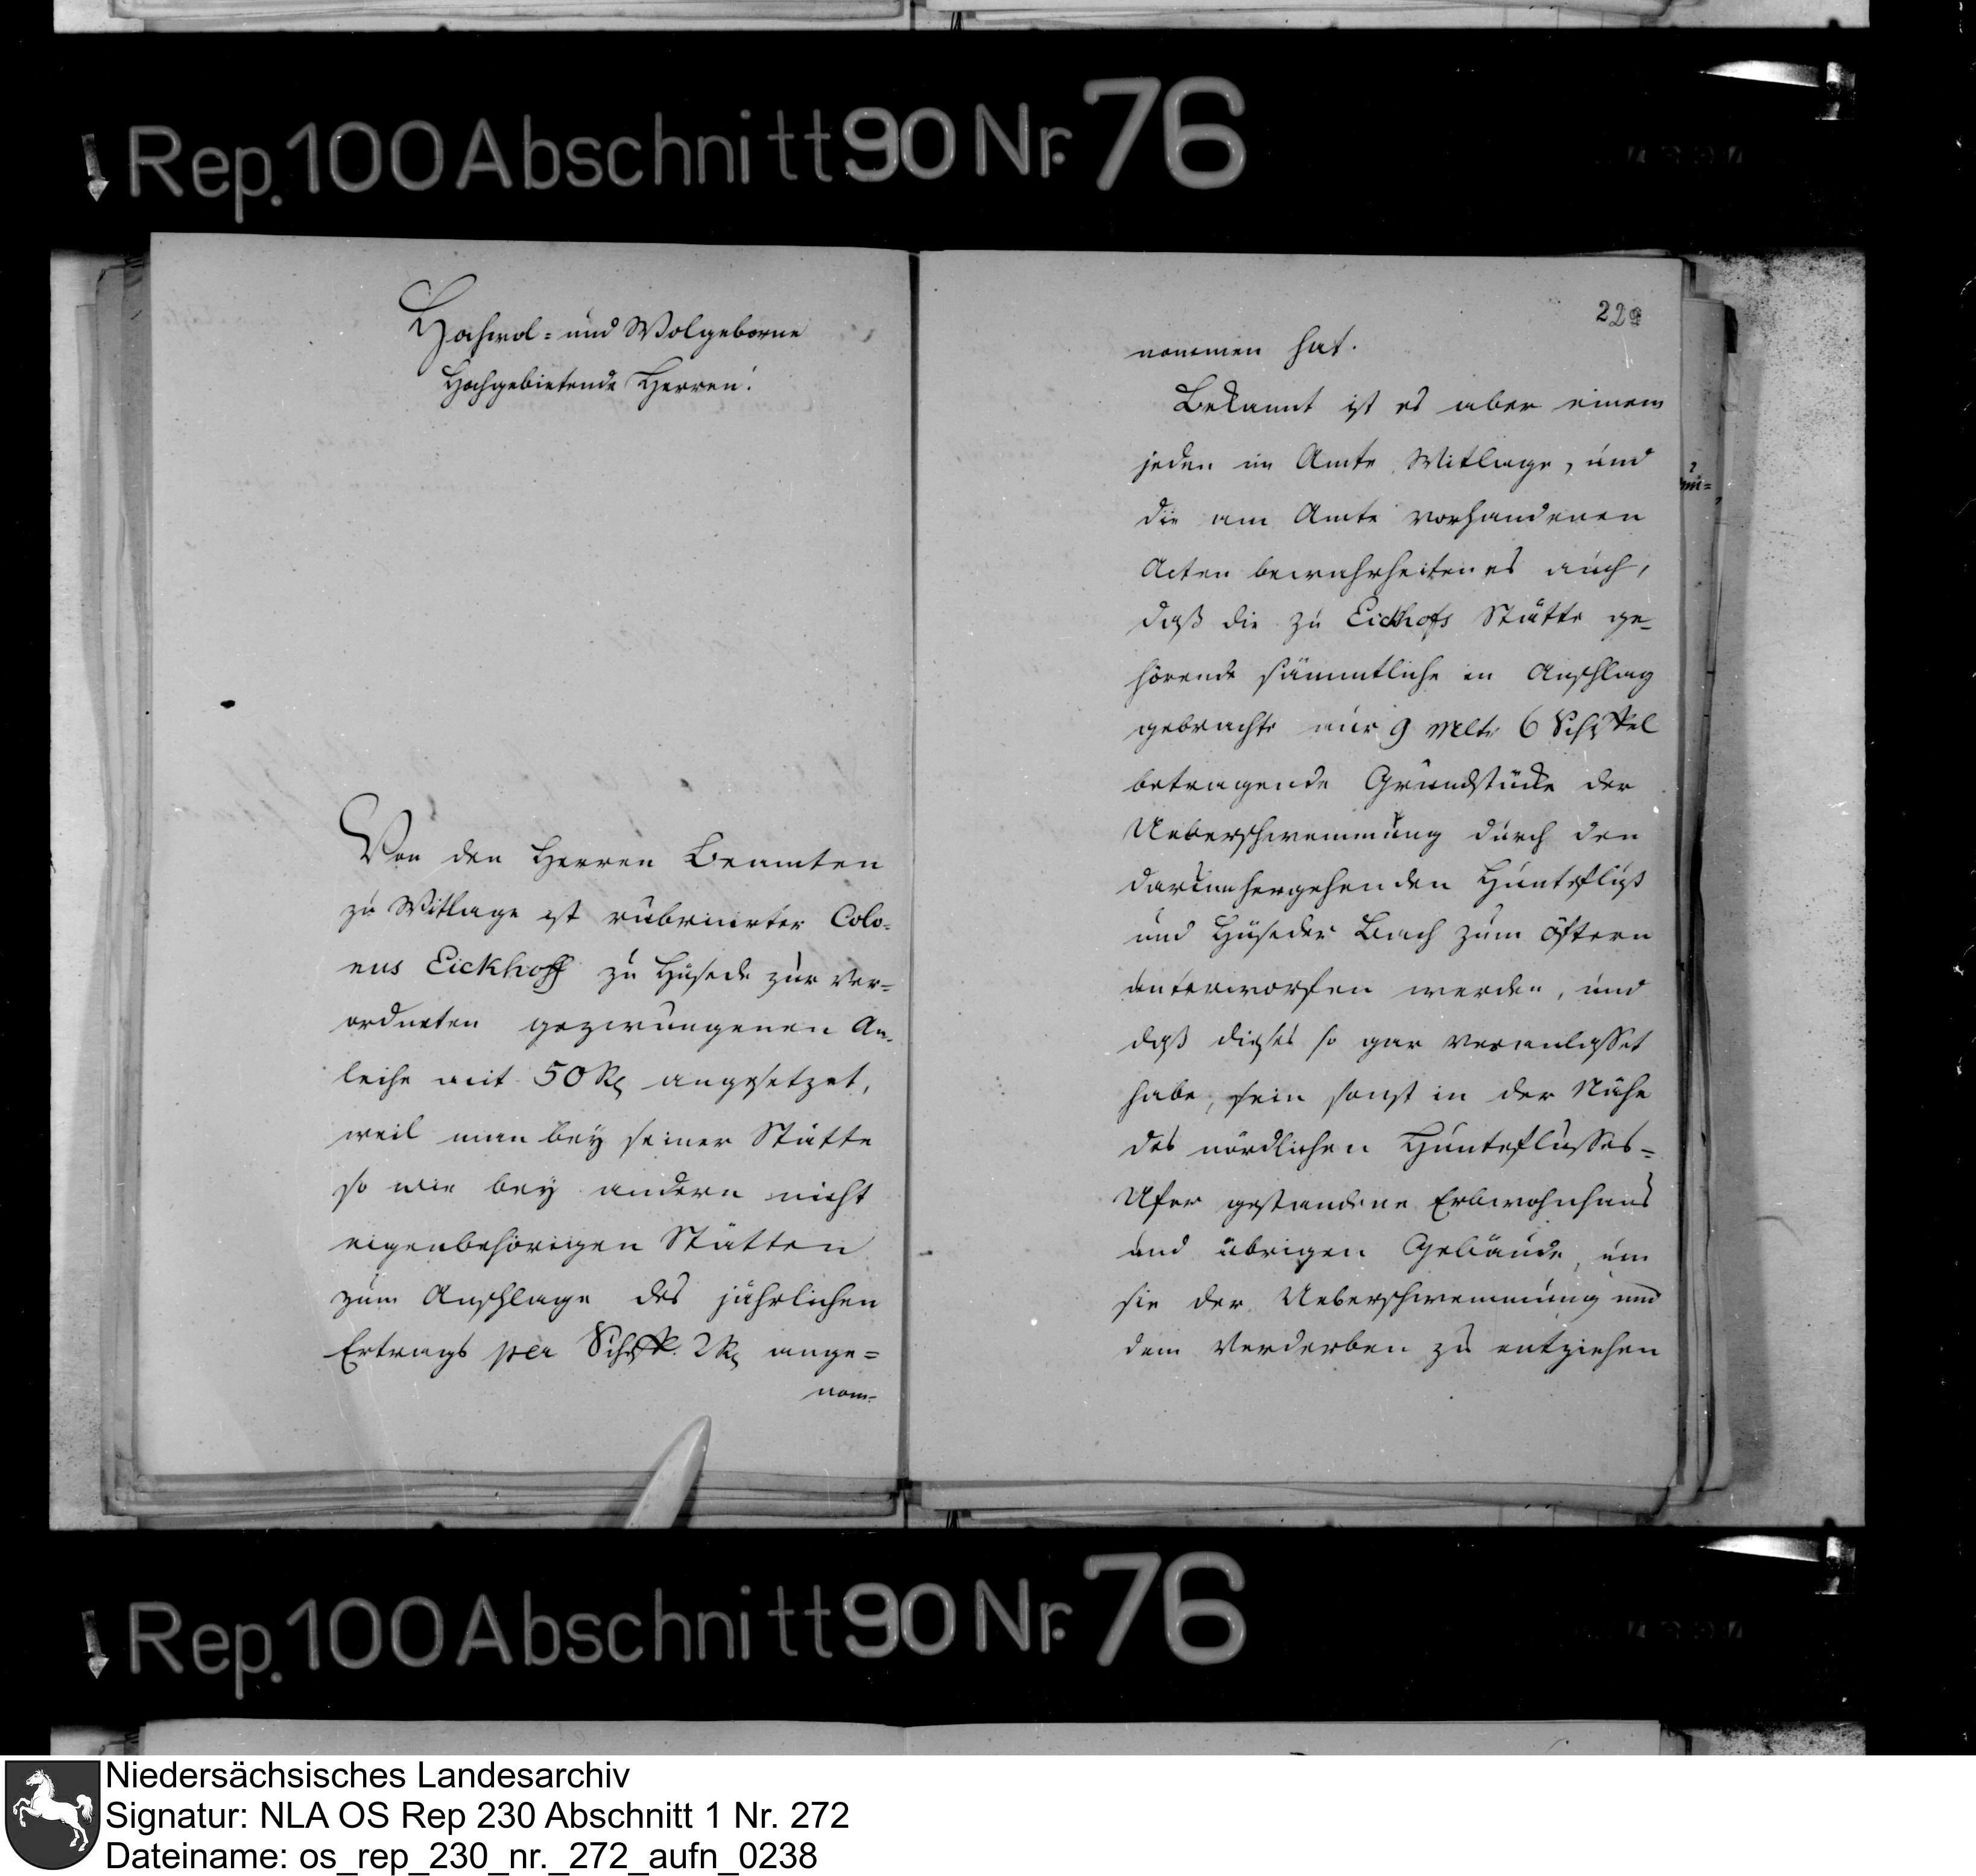 Rep. 100 Abschnitt 90 Nr. 76
Hochwol= und Wolgeborne
Hochgebietende Herren!
Von den Herren Beamten
zu Witlage ist rubricirter Colo=
nus Eickhoff zu Hüsede zur ver=
ordneten gezwungenen An=
leihe mit 50 Rthlr angesetzet,
weil man bey seiner Stätte
so wie bey andern nicht
eigenbehörigen Stätten
zum Anschlage des jährlichen
Ertrags per Schffl. 2 Rthlr ange=
nom=
229
nommen hat.
Bekannt ist es aber einem
jeden im Amte Witlage, und
die am Amte vorhandenen
Acten bewahrheiten es auch,
daß die zu Eickhofs Stätte ge=
hörende sämmtliche in Anschlag
gebrachte nur 9 Mltr 6 Scheffel
betragende Grundstücke der
Ueberschwemmung durch den
darumhergehenden Huntefluß
und Hüseder Bach zum öftern
unterworfen werden, und
daß dieses so gar veranlasset
habe, sein sonst in der Nähe
des nördlichen Hunteflusses=
Ufer gestandene Erbwohnhaus
und übrigen Gebäude, um
sie der Ueberschwemmung und
dem Verderben zu entziehen
Rep. 100 Abschnitt 90 Nr. 76
Niedersächsisches Landesarchiv
Signatur: NLA OS Rep 230 Abschnitt 1 Nr. 272
Dateiname: os_rep_230_nr._272_aufn_0238